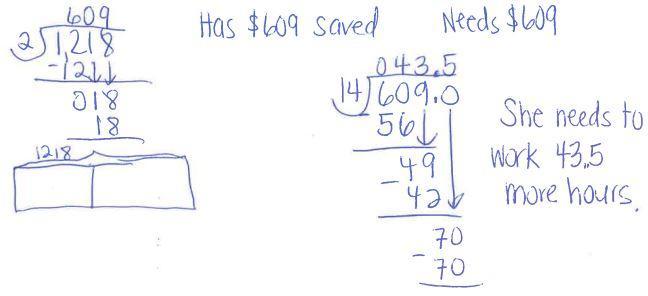 609
2)1,218
-12
018
18
1218
Has $609 saved
Needs $609
043.5
14)609.0
56
49
- 42
70
- 70
She needs to
work 43.5
more hours.